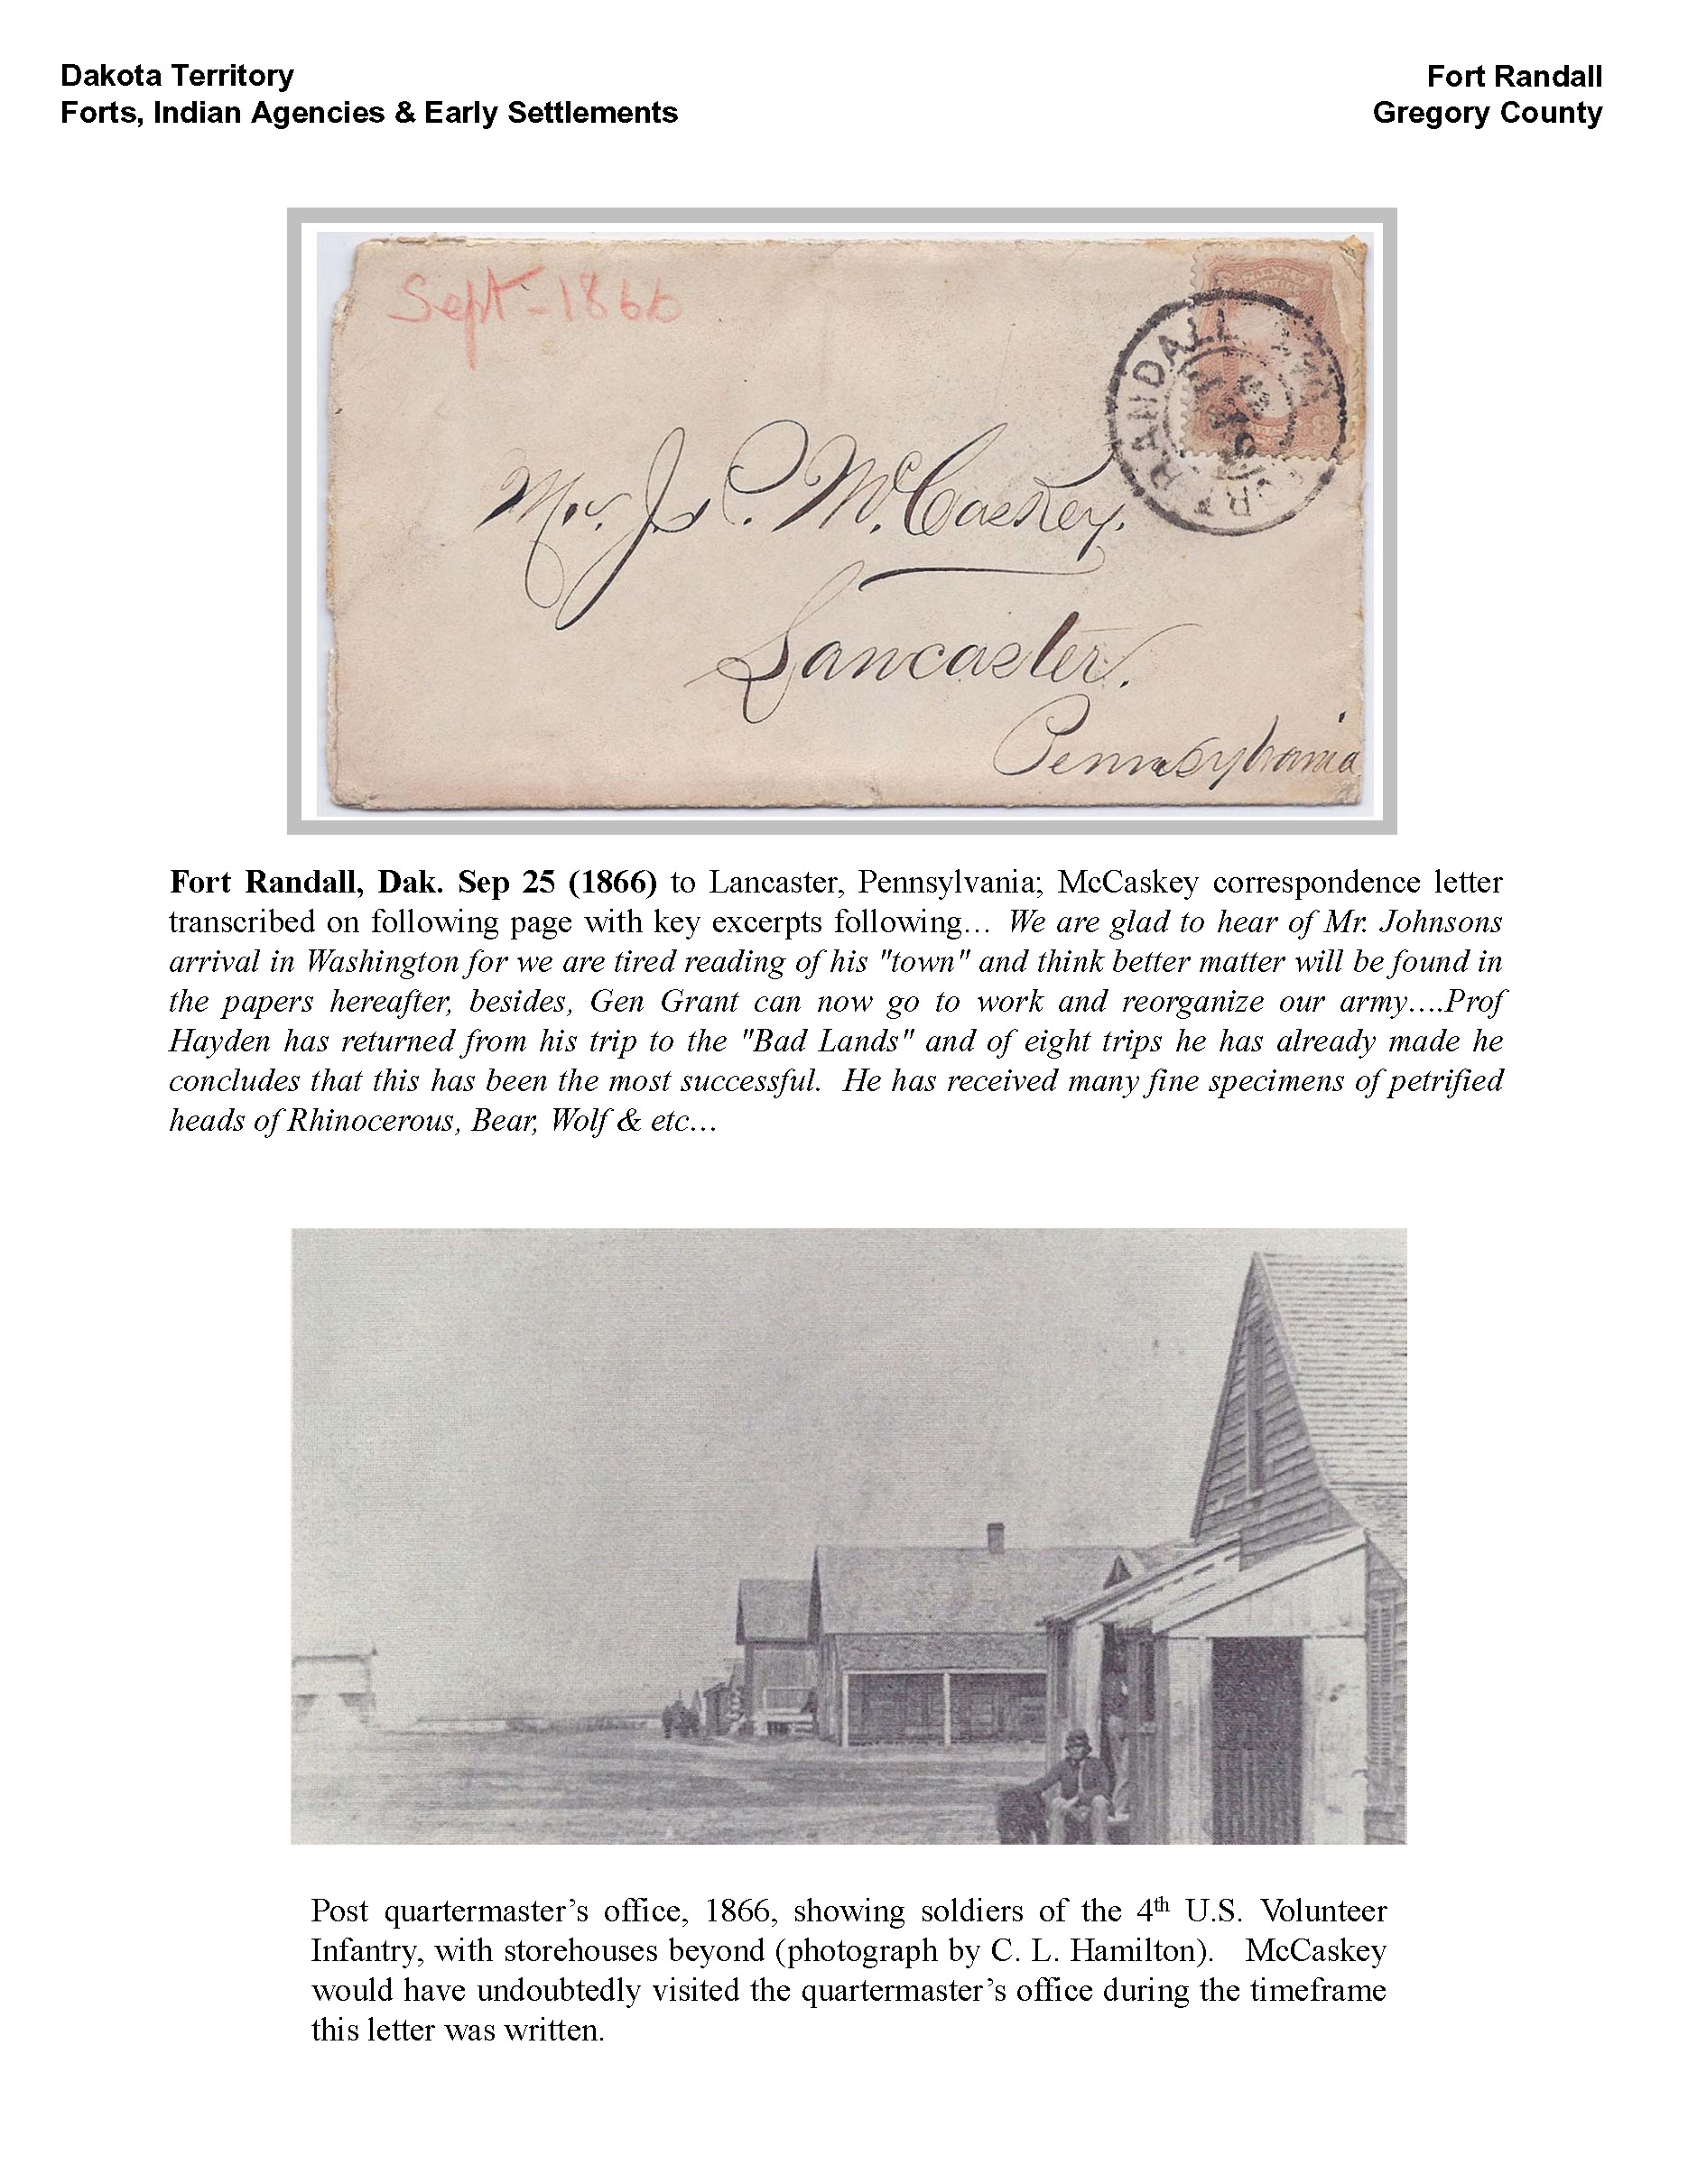 Dakota Territory
Forts, Indian Agencies & Early Settlements
Fort Randall
Gregory County
Sept - 1866
RANDALL
Mr. J. P. McCaskey.
Lancaster.
Pennsylvania
Fort Randall, Dak. Sep 25 (1866) to Lancaster, Pennsylvania; McCaskey correspondence letter
transcribed on following page with key excerpts following… We are glad to hear of Mr. Johnsons
arrival in Washington for we are tired reading of his "town" and think better matter will be found in
the papers hereafter, besides, Gen Grant can now go to work and reorganize our army….Prof
Hayden has returned from his trip to the "Bad Lands" and of eight trips he has already made he
concludes that this has been the most successful.  He has received many fine specimens of petrified
heads of Rhinocerous, Bear, Wolf & etc…
Post quartermaster’s office, 1866, showing soldiers of the 4th U.S. Volunteer
Infantry, with storehouses beyond (photograph by C. L. Hamilton).   McCaskey
would have undoubtedly visited the quartermaster’s office during the timeframe
this letter was written.